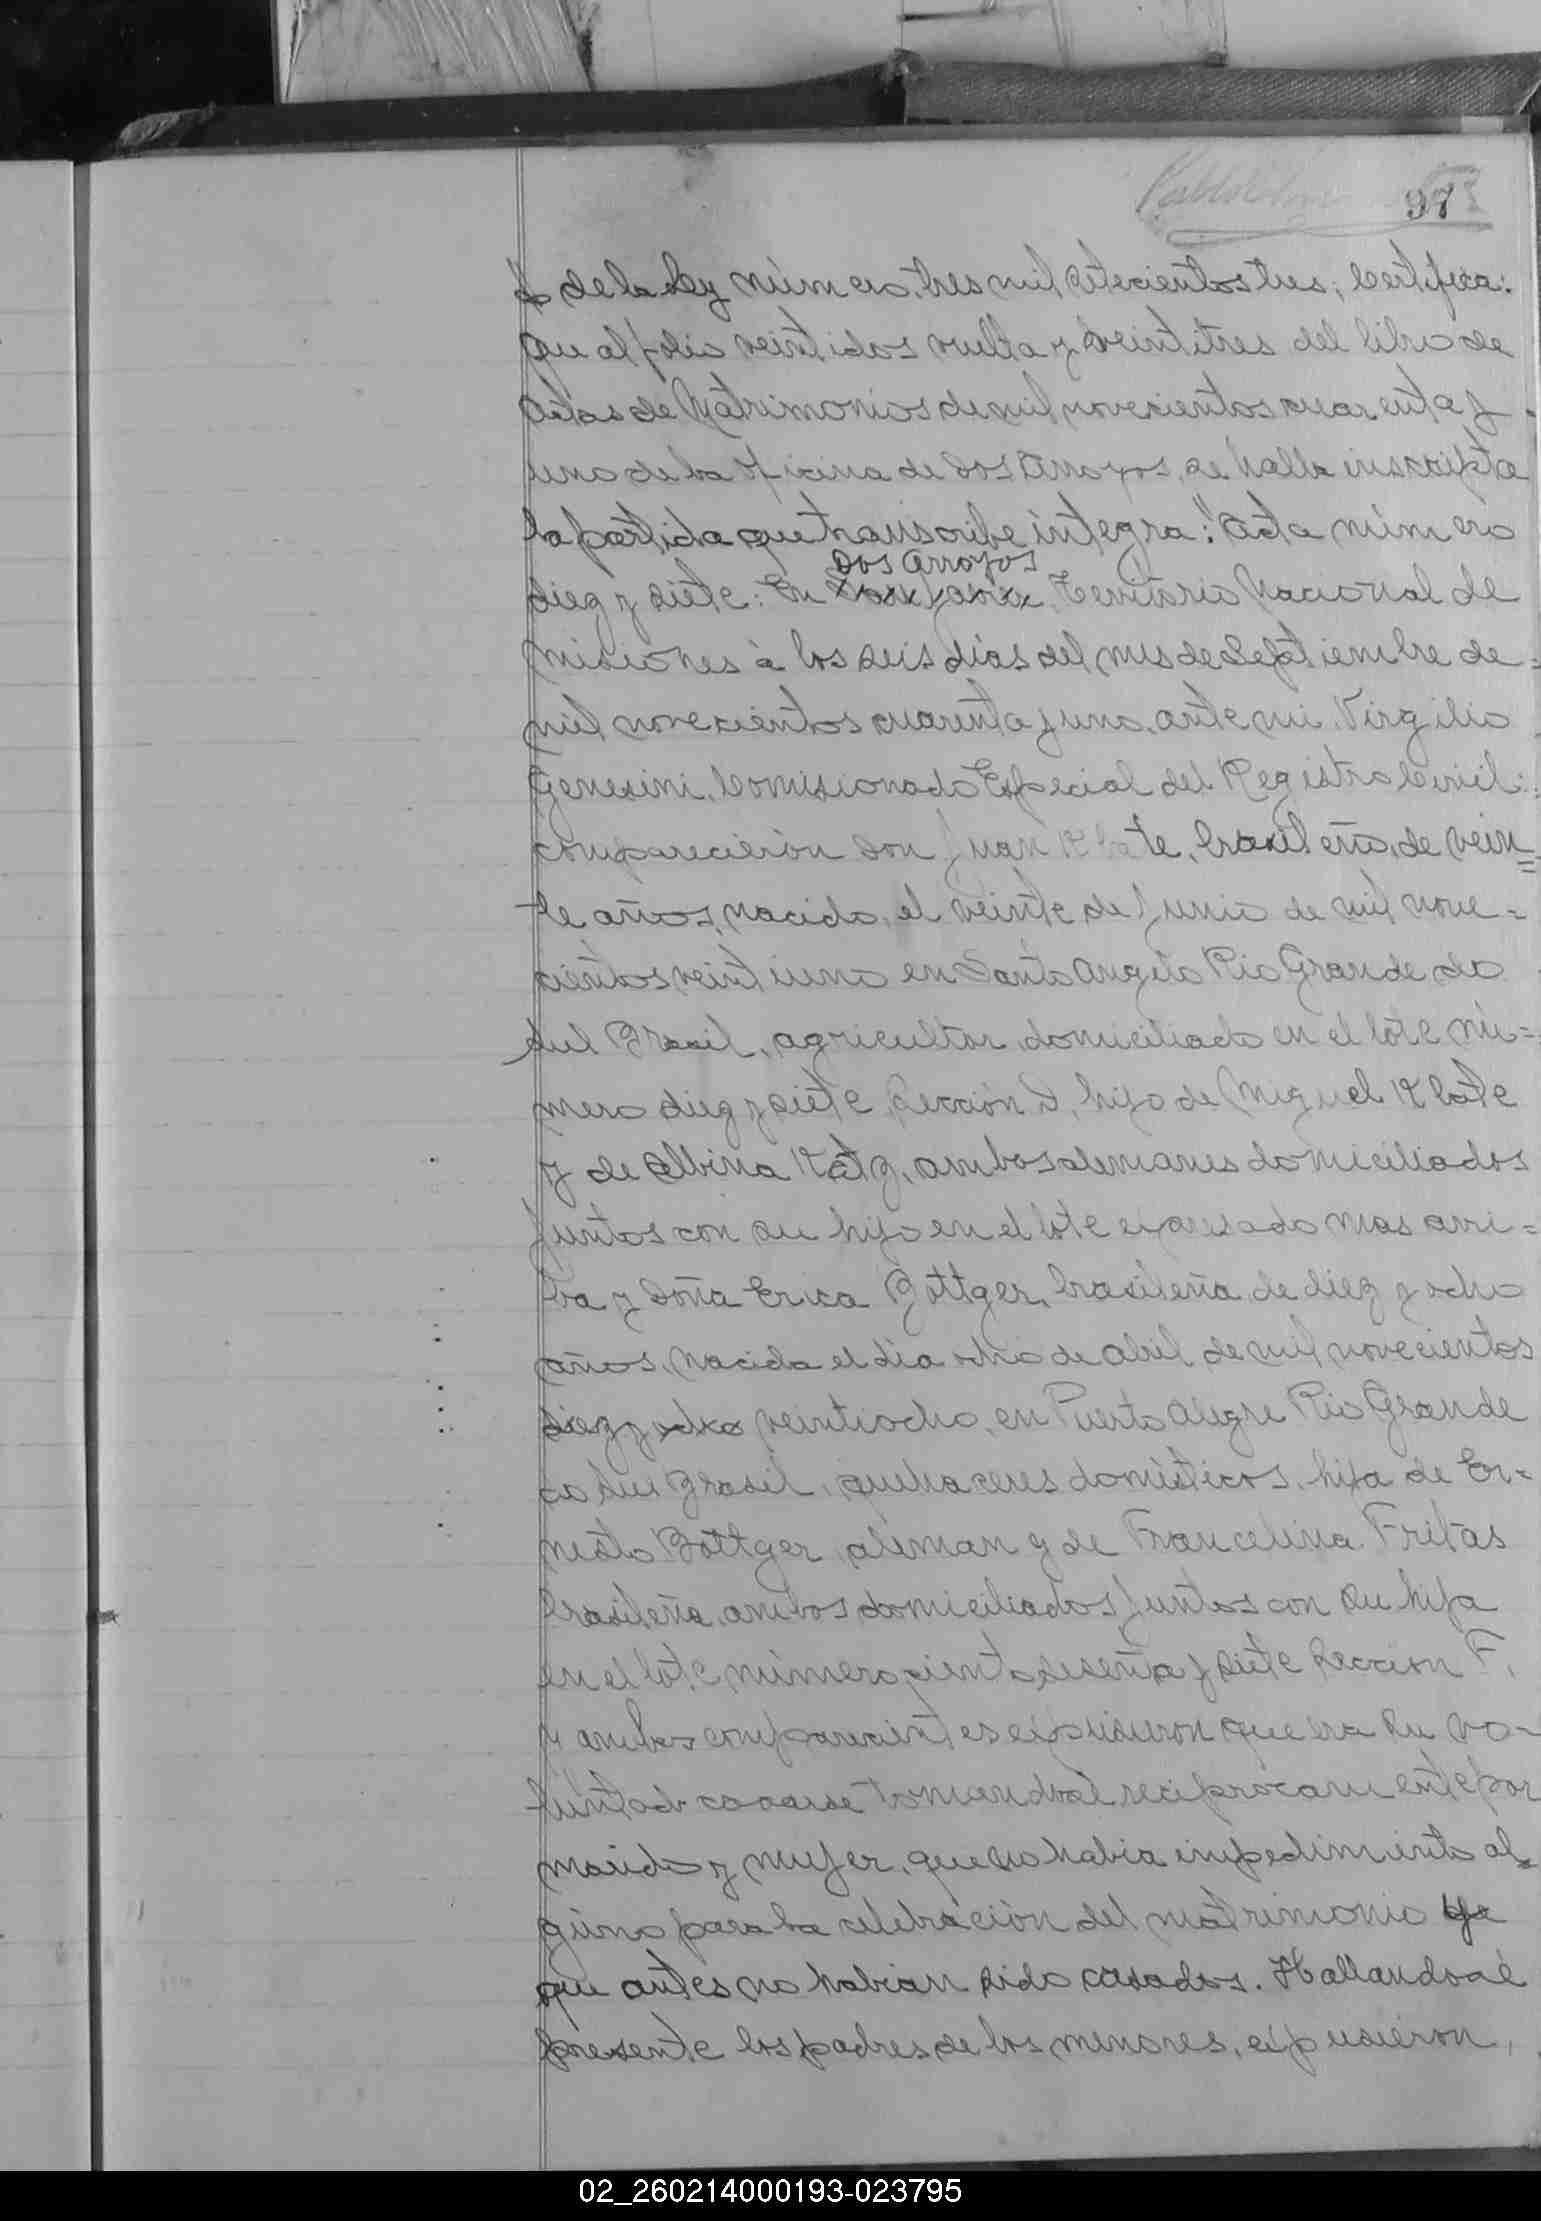 97
de la Ley número tres mil setecientos tres; Certifica:
que al folio veintidos vuelta y veintitres del libro de
Actas de Matrimonios de mil novecientos cuarenta y
uno de la Oficina de Dos Arroyos, se halla inscripta
la partida que transcribe íntegra: "Acta número
Dos Arroyos
diez y siete: En Territorio Nacional de
Misiones á los seis días del mes de Septiembre de=
mil novecientos cuarenta y uno, ante mi Virgilio
Genesini, Comisionado Especial del Registro Civil:
comparecieron Don Juan Klate, brasileño, de vein=
te años, nacido, el veinte de Junio de mil nove=
cientos veintiuno en Santo Angelo Rio Grande do
sul Brasil, agricultor, domiciliado en el lote nú=
mero diez y siete, Sección, hijo de Miguel Klate
y de Albina Katz, ambos alemanes domiciliados
juntos con su hijo en el lote expresado mas arri=
ba y Doña Erica Böttger, brasileña, de diez y ocho
años, nacida el día ocho de abril de mil novecientos
diez y ocho veintiocho, en Puerto Alegre Rio Grande
do sul Brasil, quehaceres domésticos, hija de Er=
nesto Böttger, aleman y de Francelina Fritas
brasileña, ambos domiciliados juntos con su hija
en el lote número ciento sesenta y siete Sección F,
y ambos comparecientes expusieron que era su vo=
luntad casarse tomandosé reciprocamente por
marido y mujer, que no habia impedimento al=
guno para la celebración del matrimonio ya
que antes no habian sido casados. Hallandosé
presente los padres de los menores, expusieron,
02_260214000193-023795